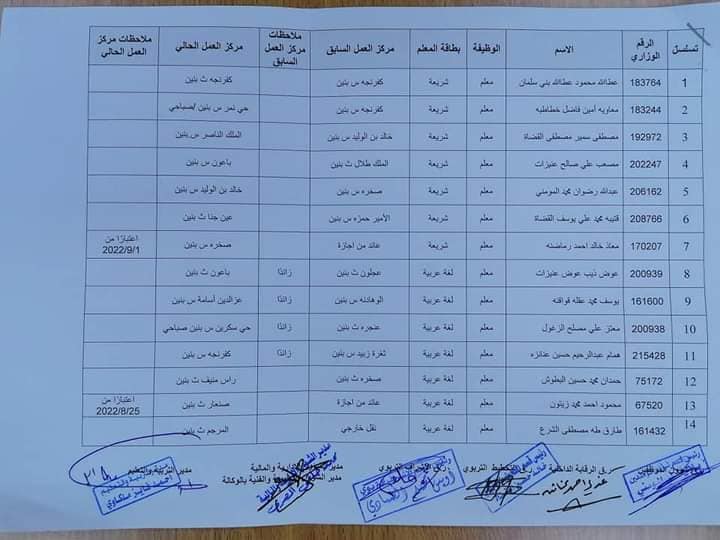 تسلسل | الرقم الوزاري | الاسم | الوظيفة | بطاقة المعلم | مركز العمل السابق | ملاحظات مركز العمل السابق | مركز العمل الحالي | ملاحظات مركز العمل الحالي
1 | 183764 | عطاالله محمود عطاالله بني سلمان | معلم | شريعة | كفرنجه س بنين | | كفرنجه ث بنين |
2 | 183244 | معاويه أمين فاضل خطاطبه | معلم | شريعة | كفرنجه س بنين | | حي نمر س بنين /صباحي |
3 | 192972 | مصطفى سمير مصطفى القضاة | معلم | شريعة | خالد بن الوليد س بنين | | الملك الناصر س بنين |
4 | 202247 | مصعب علي صالح عنيزات | معلم | شريعة | الملك طلال ث بنين | | باعون س بنين |
5 | 206162 | عبدالله رضوان محمد المومني | معلم | شريعة | صخره س بنين | | خالد بن الوليد س بنين |
6 | 208766 | قتيبه محمد علي يوسف القضاة | معلم | شريعة | الأمير حمزه س بنين | | عين جنا ث بنين |
7 | 170207 | معاذ خالد احمد رماضنه | معلم | شريعة | عائد من اجازة | | صخره س بنين | اعتبارًا من 2022/9/1
8 | 200939 | عوض ذيب عوض عنيزات | معلم | لغة عربية | عجلون ث بنين | زائدًا | باعون ث بنين |
9 | 161600 | يوسف محمد عقله قواقنه | معلم | لغة عربية | الوهادنه س بنين | زائدًا | عزالدين أسامة س بنين |
10 | 200938 | معتز علي مصلح الزغول | معلم | لغة عربية | عنجره ث بنين | زائدًا | حي سكرين س بنين صباحي |
11 | 215428 | همام عبدالرحيم حسين عنانزه | معلم | لغة عربية | ثغرة زبيد س بنين | زائدًا | كفرنجه س بنين |
12 | 75172 | حمدان محمد حسين البطوش | معلم | لغة عربية | صخره ث بنين | | راس منيف ث بنين |
13 | 67520 | محمود احمد محمد زيتون | معلم | لغة عربية | عائد من اجازة | | صنعار ث بنين | اعتبارًا من 2022/8/25
14 | 161432 | طارق طه مصطفى الشرع | معلم | لغة عربية | نقل خارجي | | المرجم ث بنين |
الرقابة الداخلية
التخطيط التربوي
الإشراف التربوي
مدير الشؤون الإدارية والمالية
والفنية بالوكالة
مدير التربية والتعليم